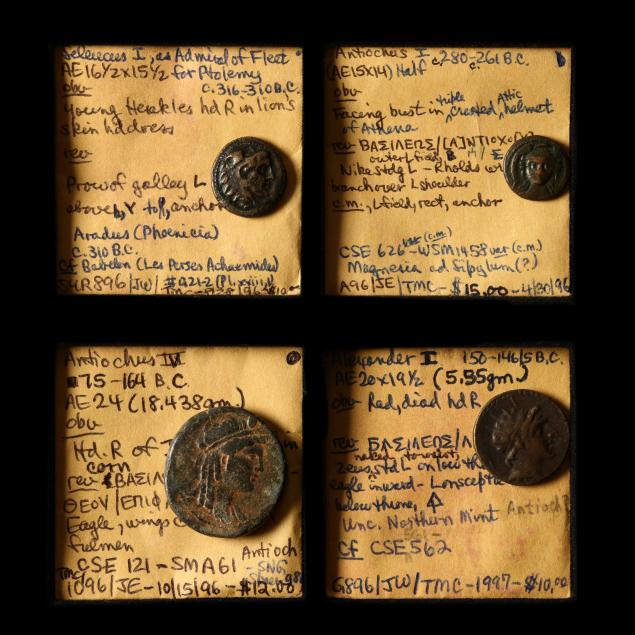 Seleucus I, as Admiral of Fleet
AE16½x15½ for Ptolemy
obv c.316-310 B.C.
young Herakles hd R in lion's
skin hddress
rev
Prow of galley L
above, anchor
Aradus (Phoenicia)
c.310 B.C.
Cf Babelon (Les Perses Achaemenides)
SHR896/JW/
Antiochus I c.280-261 B.C.
(AE15X14) Half
obv
Facing bust in triple crested Attic helmet
of Athena
rev ΒΑΣΙΛΕΩΣ/[Α]ΝΤΙΟΧΟ
outer field,
Nike stdg L - R holds wr
branch over L shoulder
c.m., L field, rect, anchor
CSE 626 var (c.m.) - WSM1458 var (c.m.)
Magnesia ad Sipylum (?)
A96/JE/TMC-$15.00-4/30/96
Antiochus IV
175-164 B.C.
AE24 (18.438gm)
obv
Hd. R of
corn
rev ΒΑΣΙΛ
ΘΕΟΥ/ΕΠΙΦ
Eagle, wings
fulmen
Antioch
CSE 121-SMA61
TMC
1096/JE-10/15/96-$12.00
Alexander I 150-146/5 B.C.
AE20x19½ (5.55gm)
obv Rad, diad hd R
rev ΒΑΣΙΛΕΩΣ/Α
naked to waist,
Zeus, std L on low th
eagle inward - L on scepte
below throne,
Unc. Northern Mint Antioch?
Cf CSE562
G896/JW/TMC-1997-$10.00